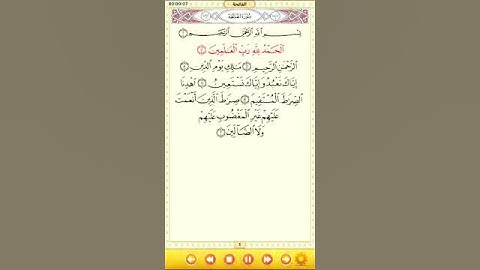 00:00:07
الفاتحة
سُورَةُ الْفَاتِحَةِ
بِسْمِ ٱللَّهِ ٱلرَّحْمَٰنِ ٱلرَّحِيمِ ١
ٱلْحَمْدُ لِلَّهِ رَبِّ ٱلْعَٰلَمِينَ ٢
ٱلرَّحْمَٰنِ ٱلرَّحِيمِ ٣ مَٰلِكِ يَوْمِ ٱلدِّينِ ٤
إِيَّاكَ نَعْبُدُ وَإِيَّاكَ نَسْتَعِينُ ٥ ٱهْدِنَا
ٱلصِّرَٰطَ ٱلْمُسْتَقِيمَ ٦ صِرَٰطَ ٱلَّذِينَ أَنْعَمْتَ
عَلَيْهِمْ غَيْرِ ٱلْمَغْضُوبِ عَلَيْهِمْ
وَلَا ٱلضَّآلِّينَ ٧